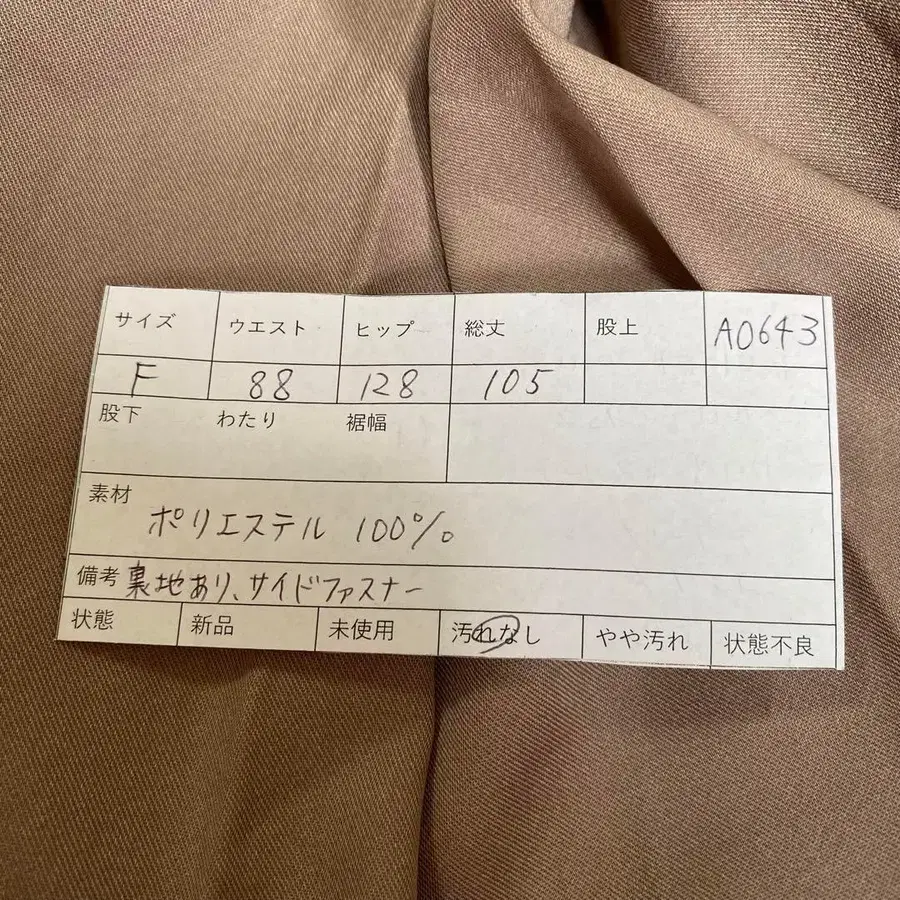 サイズ ウエスト ヒップ 総丈 股上 A0643
F 88 128 105
股下 わたり 裾幅
素材
ポリエステル 100%
備考 裏地あり、サイドファスナー
状態 新品 未使用 汚れなし やや汚れ 状態不良